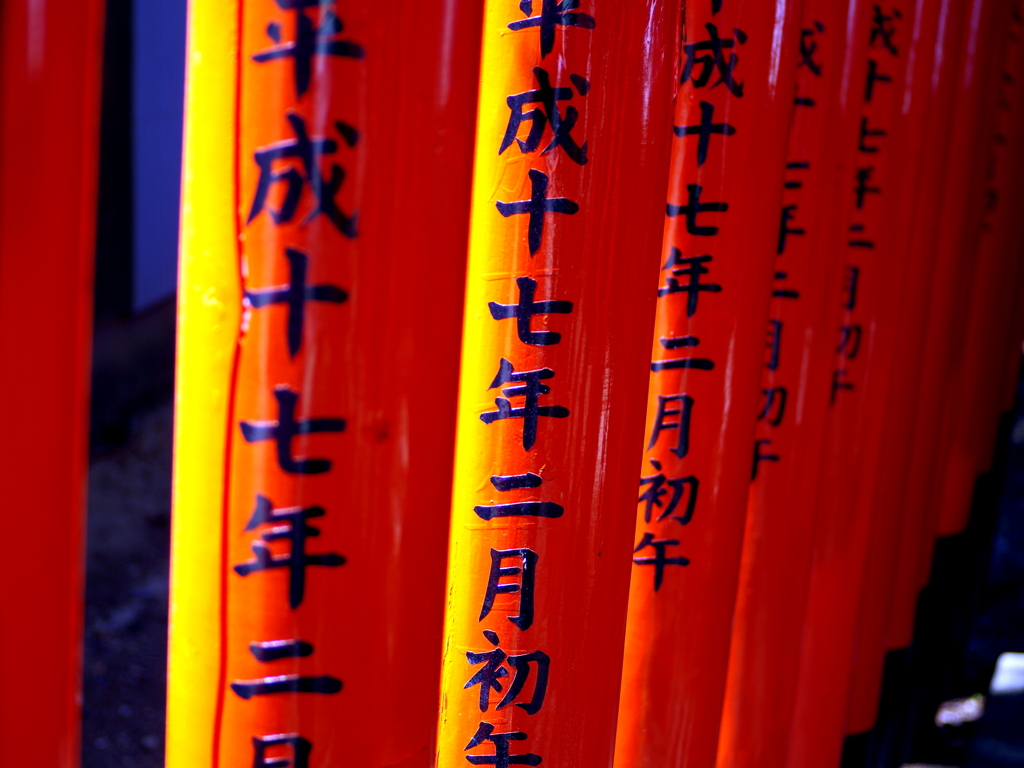 平成十七年二月
平成十七年二月初午
成十七年二月初午
成十二年二月初午
成十七年二月初午